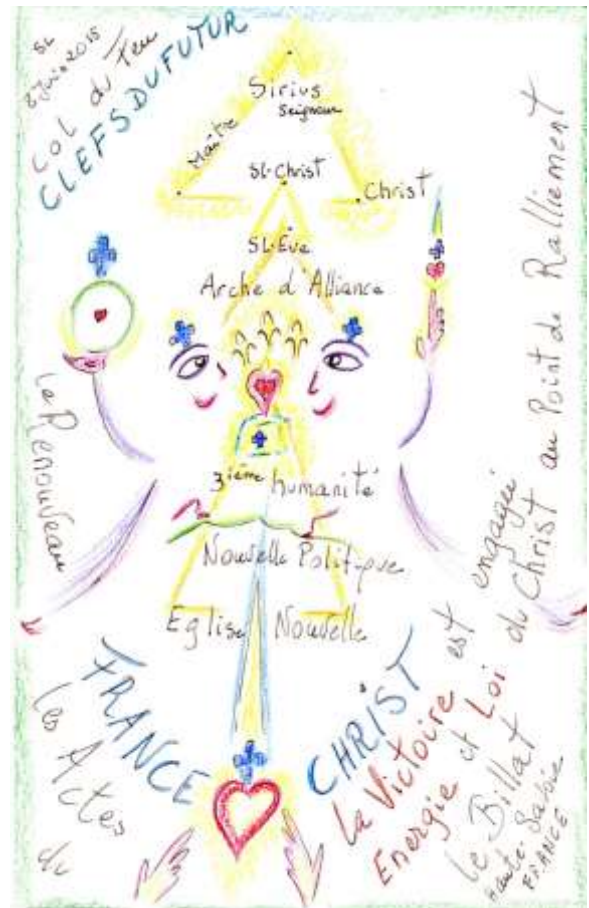 SL
8 Juin 2015
Col du Feu
CLEFSDUFUTUR
Sirius
Seigneur
Maître
SL-Christ
Christ
SL-Eve
Arche d'Alliance
Le Renouveau
3ième humanité
Nouvelle Politique
Eglise Nouvelle
FRANCE
CHRIST
Les Actes du
La Victoire est engagée
Energie et Loi du Christ au Point de Ralliement
Le Billat
Haute-Savoie
FRANCE